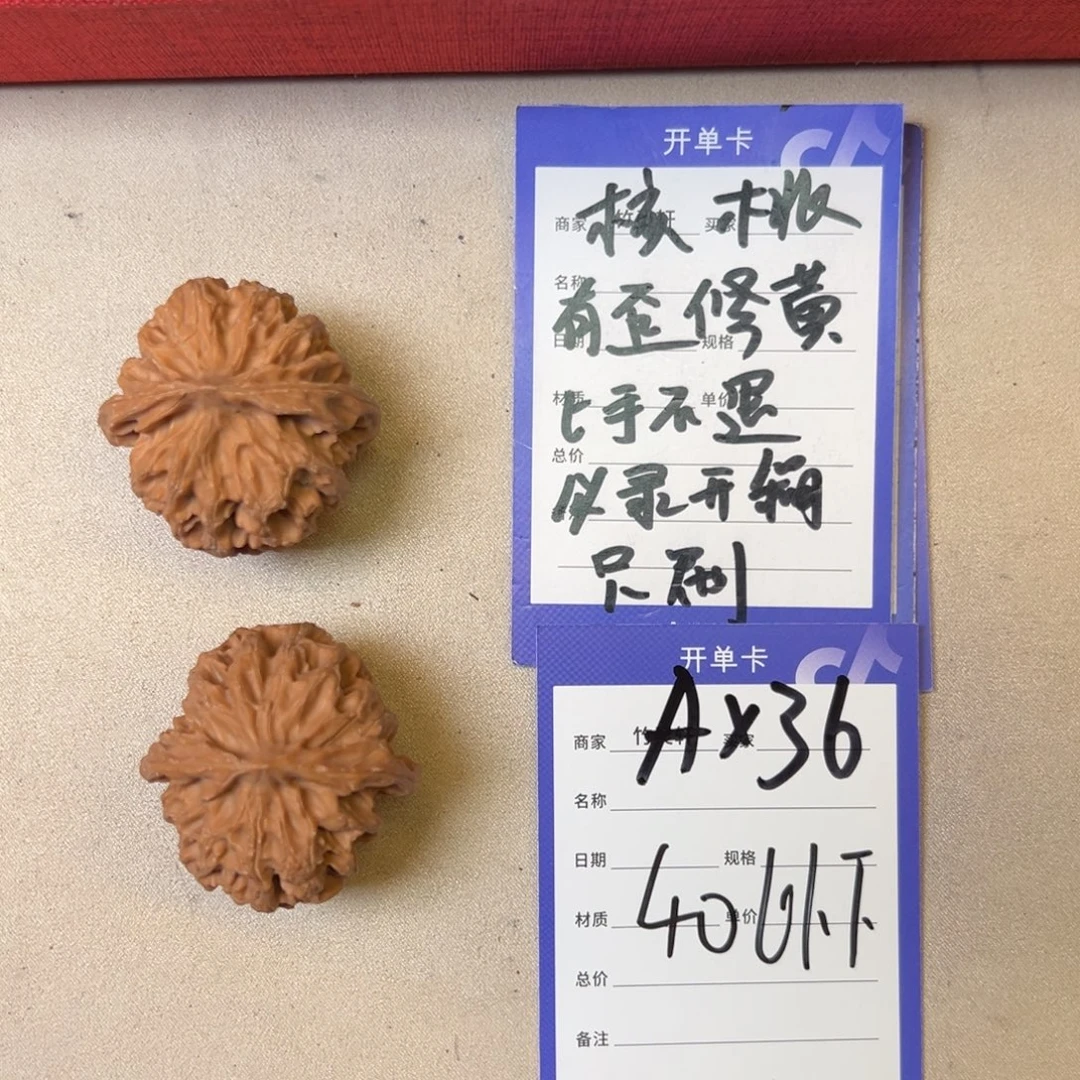 开单卡
核桃
商家
买家
名称
有歪修黄
日期
规格
上手不退
材质
单价
总价
必录开箱
只刷
开单卡
AX36
商家
买家
名称
日期
规格
40以下
材质
单价
总价
备注